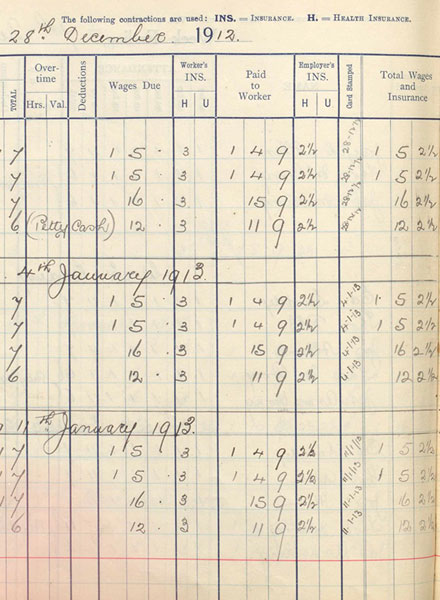 The following contractions are used: INS. = INSURANCE. H. = HEALTH INSURANCE.
28th December. 1912.
TOTAL Over-time Hrs. Val. Deductions Wages Due Worker's INS. H U Paid to Worker Employer's INS. H U Card Stamped Total Wages and Insurance
7 1 5 · 3 1 4 9 2½ 28-12-12 1 5 2½
7 1 5 · 3 1 4 9 2½ 28-12-12 1 5 2½
7 16 · 3 15 9 2½ 28-12-12 16 2½
6 (Petty Cash) 12 · 3 11 9 2½ 28-12-12 12 2½
4th January 1913.
7 1 5 · 3 1 4 9 2½ 4-1-13 1 5 2½
7 1 5 · 3 1 4 9 2½ 4-1-13 1 5 2½
7 16 · 3 15 9 2½ 4-1-13 16 2½
6 12 · 3 11 9 2½ 4-1-13 12 2½
11th January 1913.
7 1 5 · 3 1 4 9 2½ 11/1/13 1 5 2½
7 1 5 · 3 1 4 9 2½ 11/1/13 1 5 2½
7 16 · 3 15 9 2½ 11-1-13 16 2½
6 12 · 3 11 9 2½ 11-1-13 12 2½